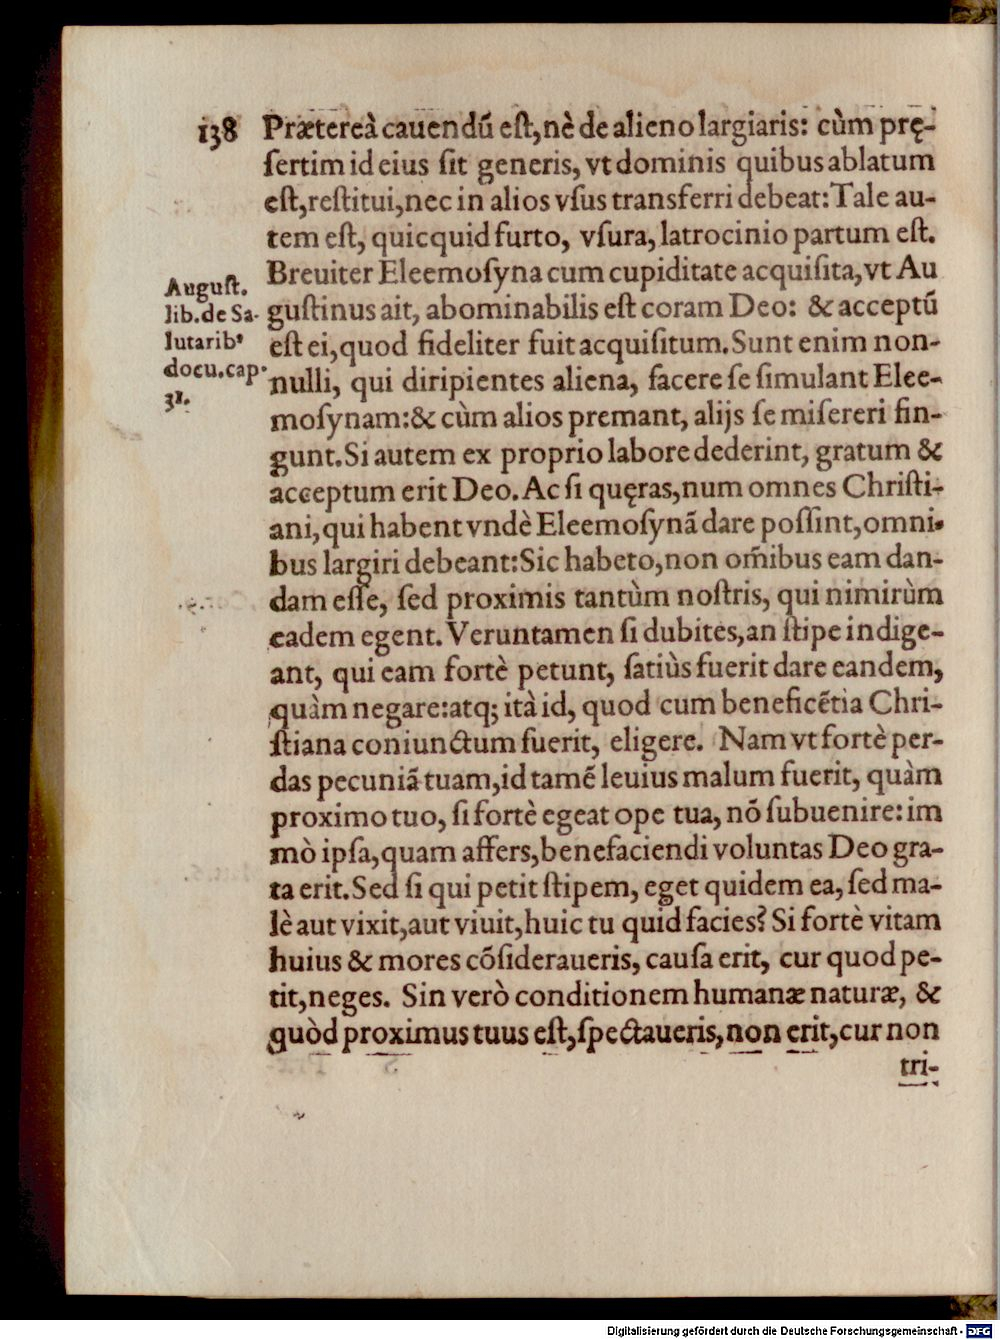 138 Prætereà cauendũ eſt, nè de alieno largiaris: cùm prę-
ſertim id eius ſit generis, vt dominis quibus ablatum
eſt, reſtitui, nec in alios vſus transferri debeat: Tale au-
tem eſt, quicquid furto, vſura, latrocinio partum eſt.
Breuiter Eleemoſyna cum cupiditate acquiſita, vt Au
guſtinus ait, abominabilis eſt coram Deo: & acceptũ
eſt ei, quod fideliter fuit acquiſitum. Sunt enim non-
nulli, qui diripientes aliena, facere ſe ſimulant Elee-
moſynam: & cùm alios premant, alijs ſe miſereri fin-
gunt. Si autem ex proprio labore dederint, gratum &
acceptum erit Deo. Ac ſi quęras, num omnes Chriſti-
ani, qui habent vndè Eleemoſynã dare poſſint, omni-
bus largiri debeant: Sic habeto, non om̃ibus eam dan-
dam eſſe, ſed proximis tantùm noſtris, qui nimirùm
eadem egent. Veruntamen ſi dubites, an ſtipe indige-
ant, qui eam fortè petunt, ſatiùs fuerit dare eandem,
quàm negare: atq; ità id, quod cum beneficẽtia Chri-
ſtiana coniunctum fuerit, eligere. Nam vt fortè per-
das pecuniã tuam, id tamẽ leuius malum fuerit, quàm
proximo tuo, ſi fortè egeat ope tua, nõ ſubuenire: im
mò ipſa, quam affers, benefaciendi voluntas Deo gra-
ta erit. Sed ſi qui petit ſtipem, eget quidem ea, ſed ma-
lè aut vixit, aut viuit, huic tu quid facies? Si fortè vitam
huius & mores cõſideraueris, cauſa erit, cur quod pe-
tit, neges. Sin verò conditionem humanæ naturæ, &
quòd proximus tuus eſt, ſpectaueris, non erit, cur non
tri-
Auguſt.
lib. de Sa-
lutaribꝰ
docu. cap.
31.
Digitalisierung gefördert durch die Deutsche Forschungsgemeinschaft - DFG